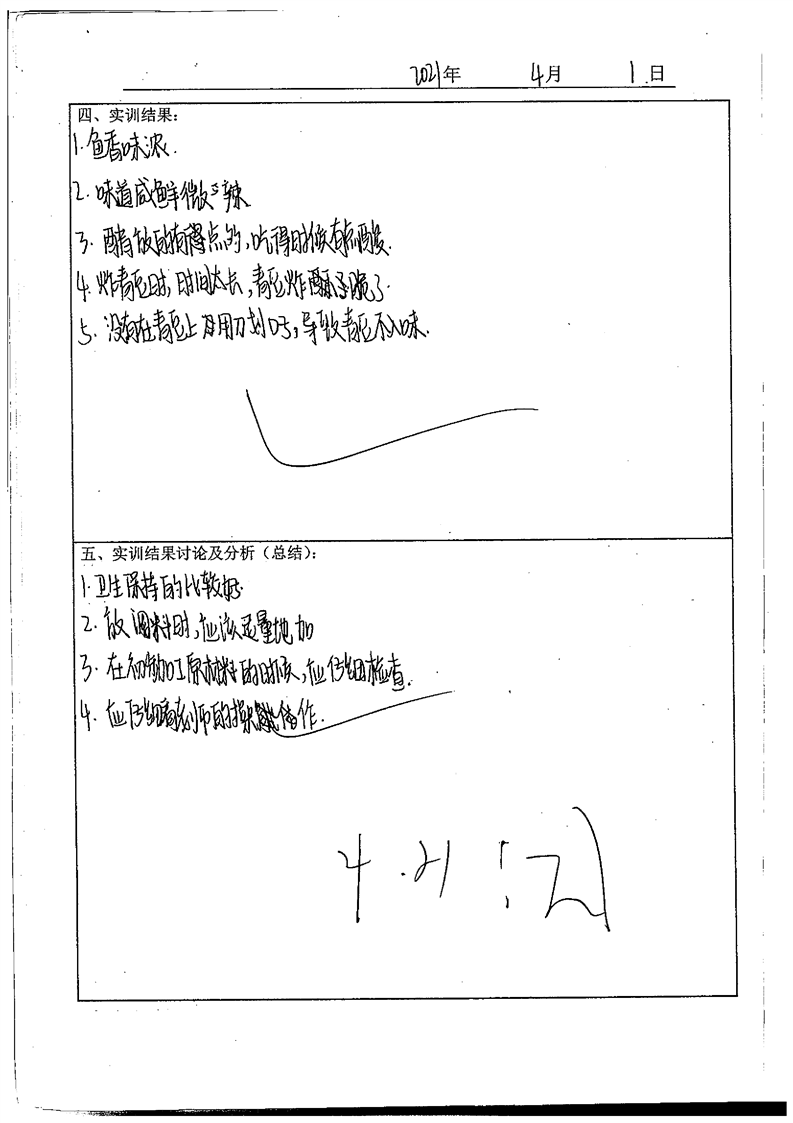 2021年 4月 1日
四、实训结果：
1.鱼香味浓.
2.味道咸鲜微辣
3.醋放的有点多,吃得时候有点酸.
4.炸茄子时,时间太长,茄子炸脆了
5.没有在茄子上用刀划口,导致茄子不入味.
五、实训结果讨论及分析（总结）：
1.卫生保持的比较好.
2.放调料时,应该适量地加
3.在初加工原材料的时候,应仔细检查.
4.应仔细看老师的操作.
4.21